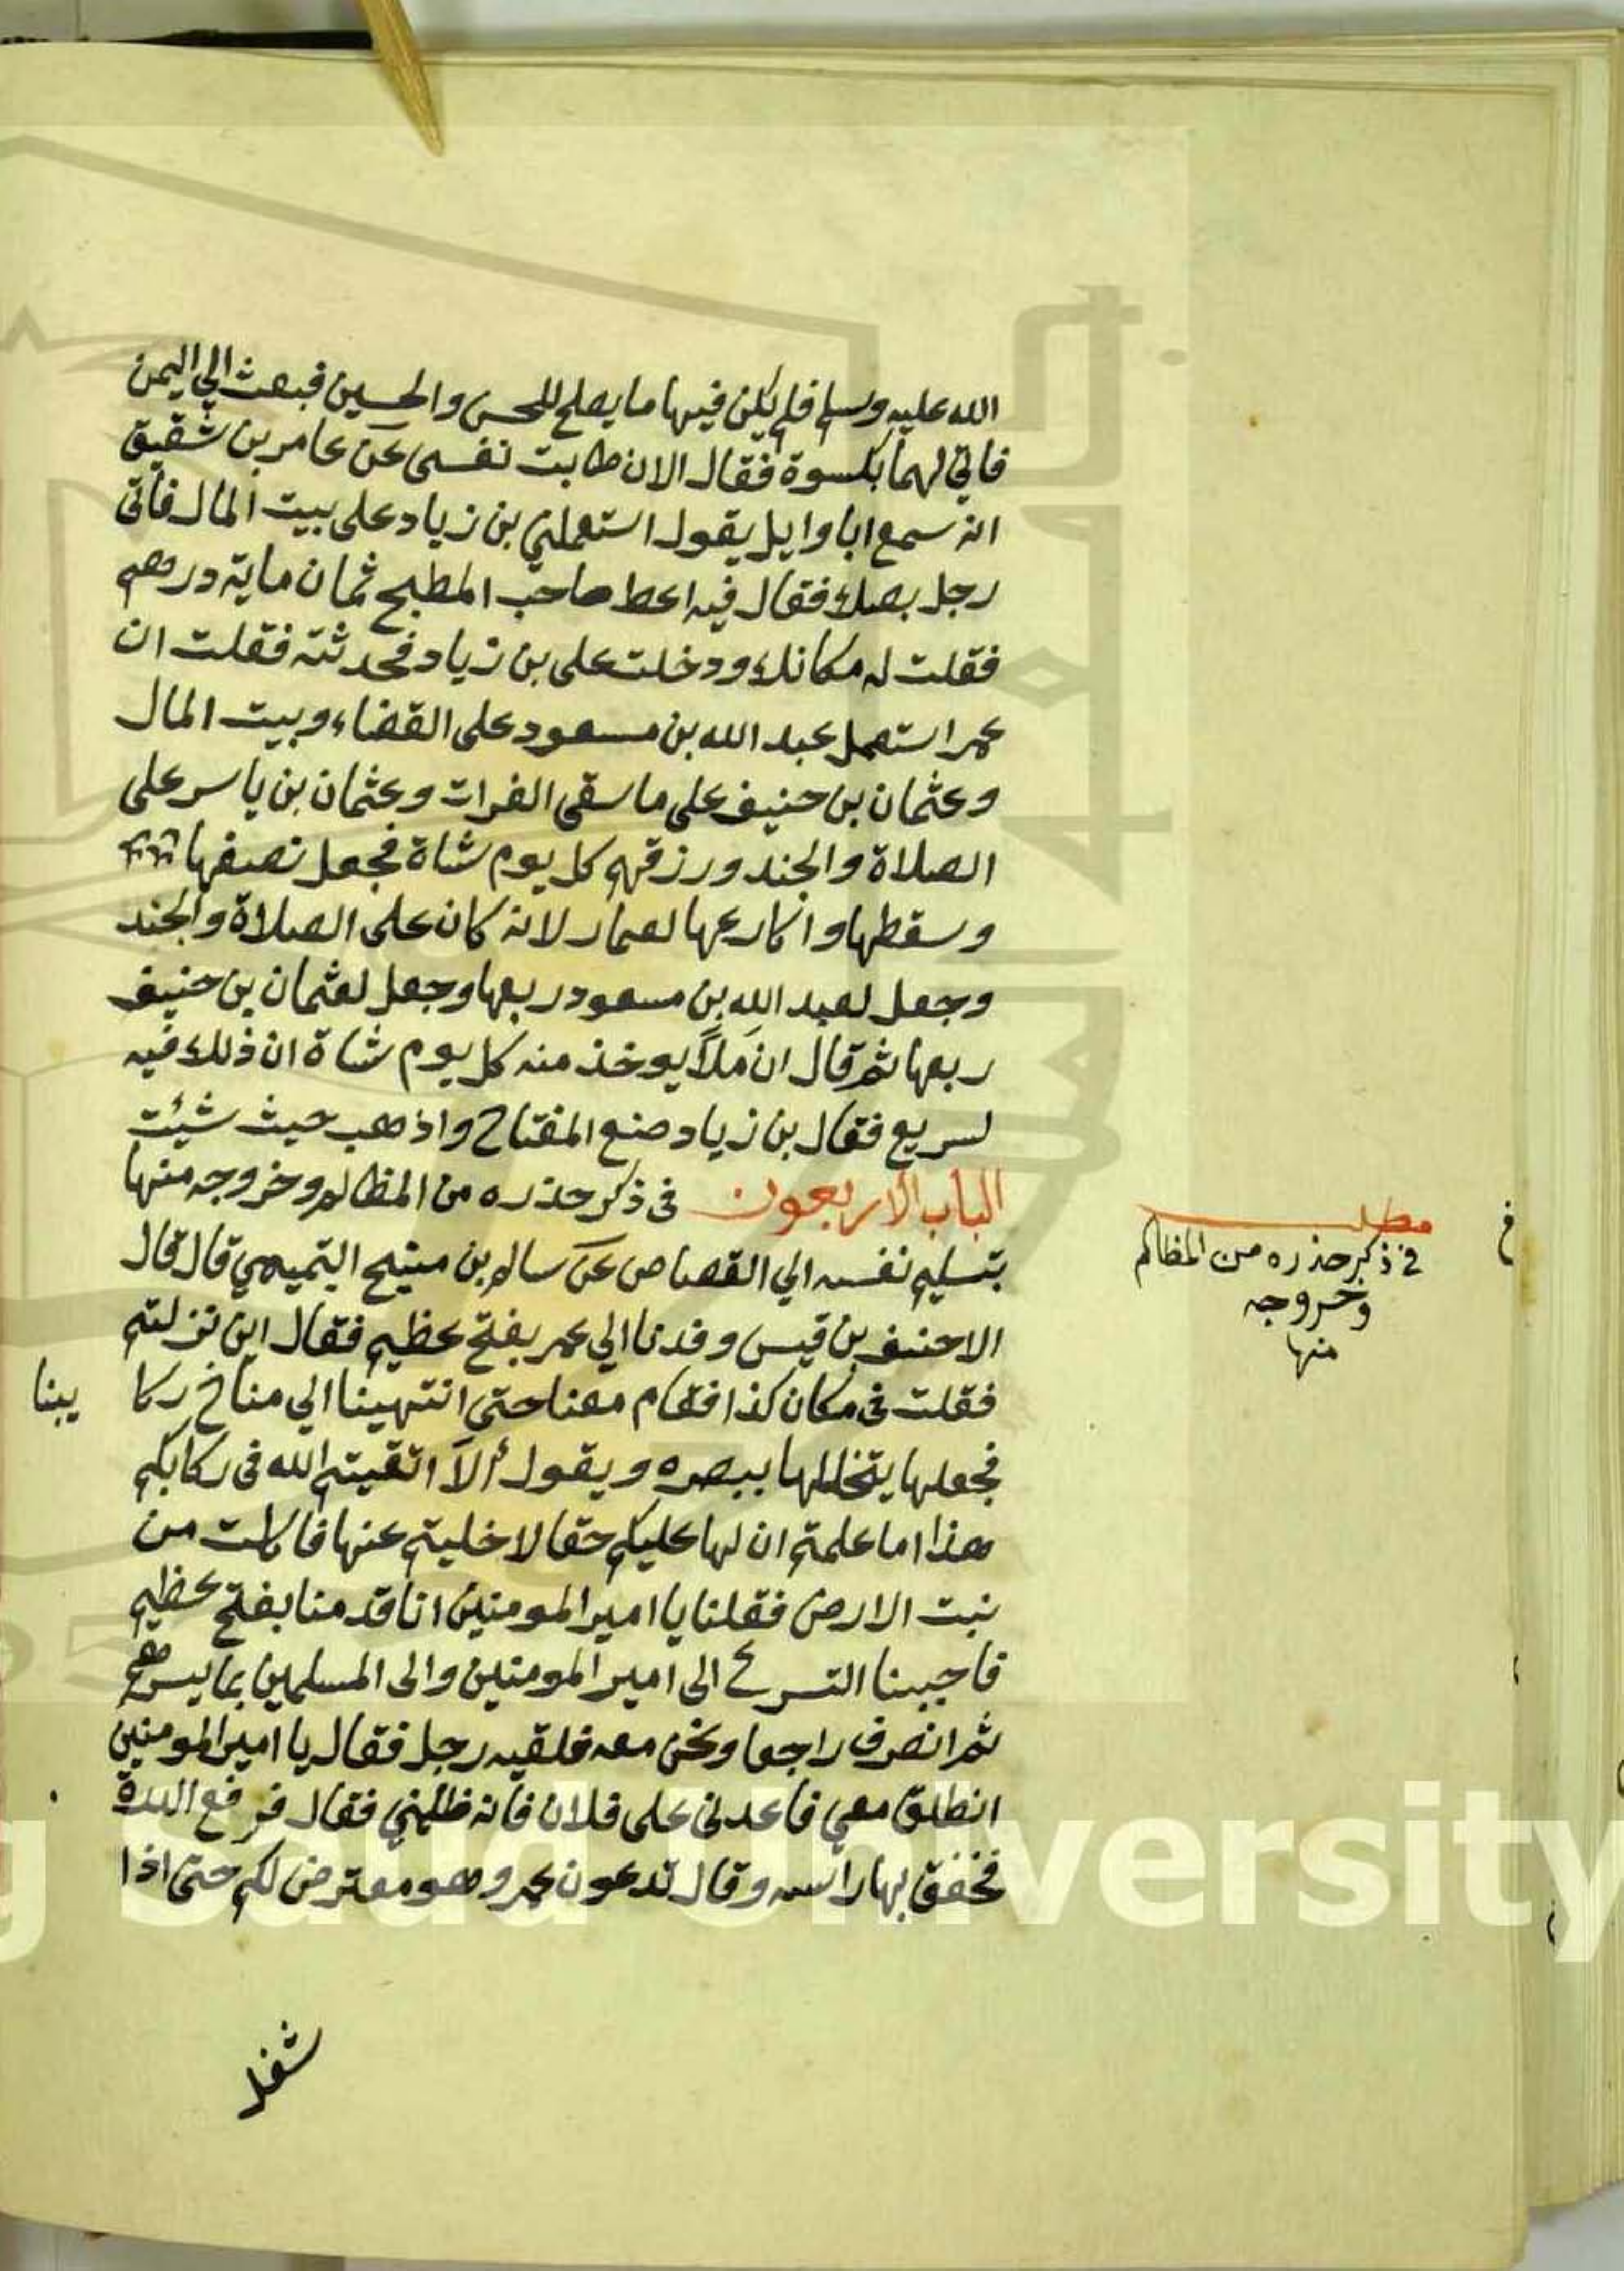 الله عليه وسلم فلم يكن فيها ما يصلح للحسن والحسين فبعث الي اليمن
فاتي لهما بكسوة فقال الان طابت نفسى عن عامر بن شقيق
انه سمع ابا وايل يقول استعملني بن زياد على بيت المال فاتى
رجل بصك فقال فيه اعط صاحب المطبخ ثمان ماية درهم
فقلت له مكانك ودخلت على بن زياد فحدثته فقلت ان
عمر استعمل عبد الله بن مسعود على القضاء وبيت المال
وعثمان بن حنيف على ما سقى الفرات وعثمان بن ياسر على
الصلاة والجند ورزقهم كل يوم شاة فجعل نصفها
وسقطها واكارعها لعمار لانه كان على الصلاة والجند
وجعل لعبد الله بن مسعود ربعها وجعل لعثمان بن حنيف
ربعها ثم قال ان مَلاً يوخذ منه كل يوم شاة ان ذلك فيه
لسريع فقال بن زياد ضع المفتاح واذهب حيث شيئت
الباب الاربعون فى ذكر حذره من المظالم وخروجه منها
بتسليم نفسه الي القصاص عن سالم بن منيح التميمي قال قال
الاحنف بن قيس وفدنا الي عمر بفتح عظيم فقال اين نزلتم
فقلت فى مكان كذا فقام معنا حتى انتهينا الي مناخ ركا يبنا
فجعلها يتخللها ببصره ويقول ألاَ اتقيتم الله فى ركابكم
هذا اما علمتم ان لها عليكم حقا لا خليتم عنها فاكلت من
نبت الارض فقلنا يا امير المومنين انا قدمنا بفتح عظيم
فاحببنا التسرع الى امير المومنين والى المسلمين بما يسرهم
ثم انصرف راجعا ونحن معه فلقيه رجل فقال يا امير المومنين
انطلق معي فاعدنى على فلان فانه ظلمني فقال فرفع الدرة
فخفق بها راسه وقال تدعون عمر وهو معترض لكم حتى اذا
شغل
مطلب
في ذكر حذره من المظالم
وخروجه
منها
King Saud University